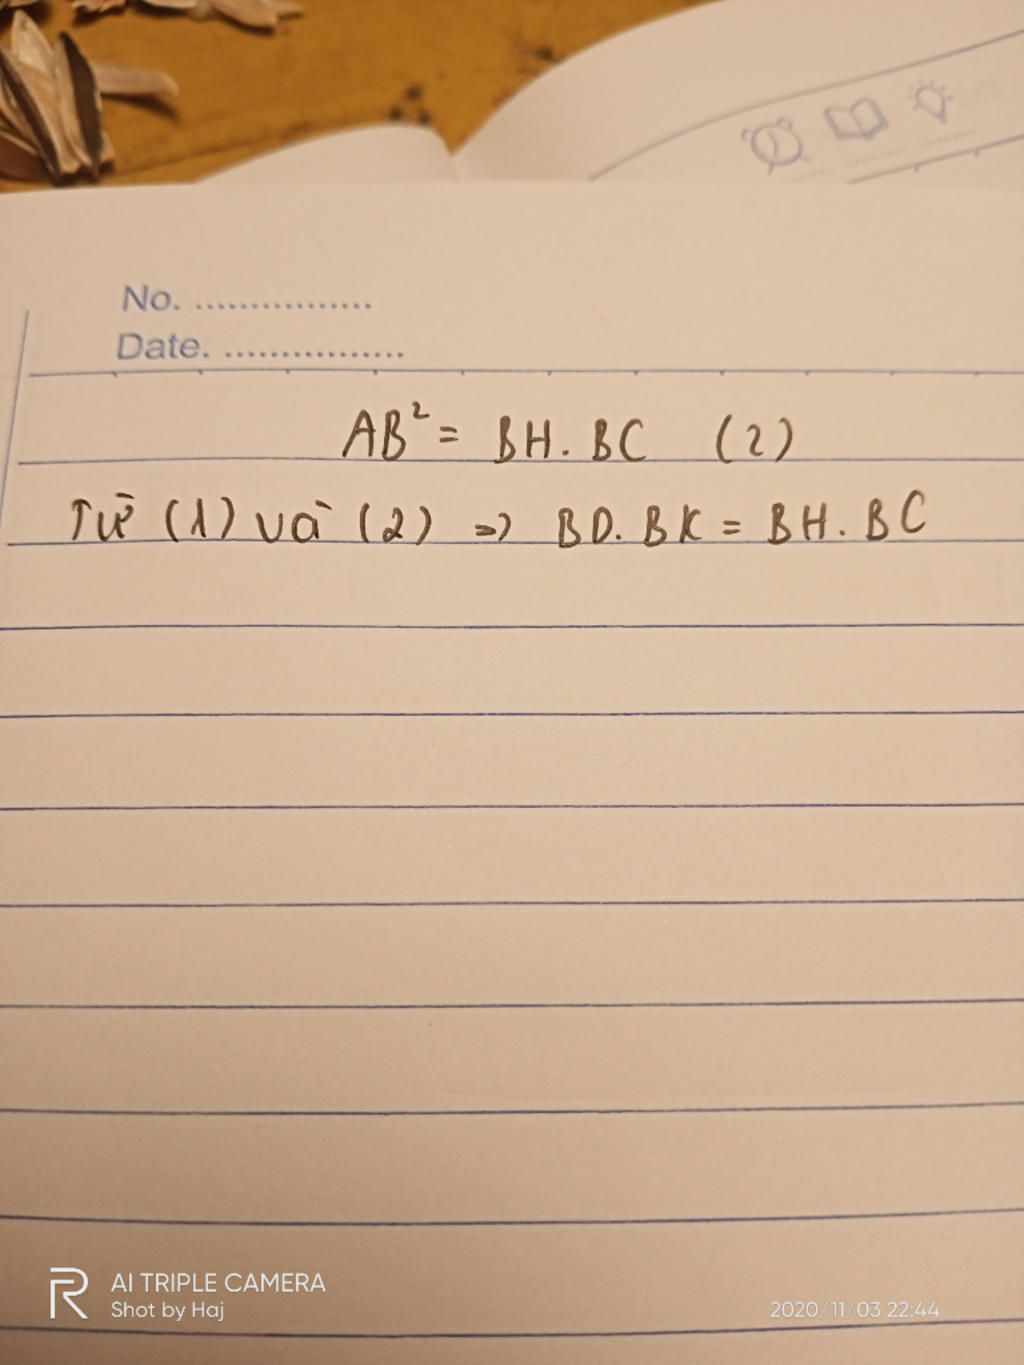 No. ................
Date. ................
AB² = BH. BC (2)
Từ (1) và (2) => BD. BK = BH. BC
AI TRIPLE CAMERA
Shot by Haj
2020/11/03 22:44